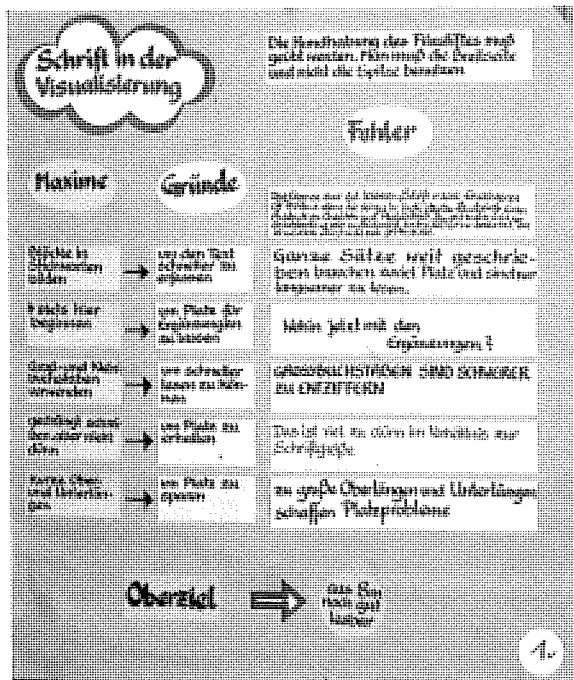 Schrift in der
Visualisierung
Die Handhabung des Filzstiftes muß
geübt werden. Man muß die Breitseite
und nicht die Spitze benutzen
Fehler
Maxime
Gründe
Blöcke in
bilden
um den Text
schneller zu
erfassen
Ganze Sätze weit geschrie-
ben brauchen zuviel Platz und sind nur
langsamer zu lesen.
links hier
beginnen
um Platz für
Ergänzungen
zu lassen
Wohin jetzt mit den
Ergänzungen?
Groß- und Klein-
buchstaben
verwenden
um schneller
lesen zu kön-
nen
GROSSBUCHSTABEN SIND SCHWERER
ZU ENTZIFFERN
gedrängt schrei-
ben, aber nicht
dünn
um Platz zu
erhalten
Das ist viel zu dünn im Verhältnis zur
Schriftgröße.
kurze Ober-
und Unterlän-
gen
um Platz zu
sparen
zu große Oberlängen und Unterlängen
schaffen Platzprobleme
Oberziel
aus 8m
noch gut
lesbar
1.